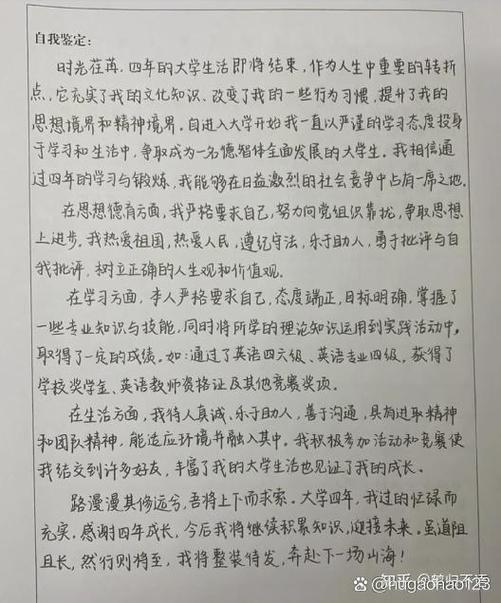 自我鉴定:
时光荏苒,四年的大学生活即将结束,作为人生中重要的转折
点,它充实了我的文化知识、改变了我的一些行为习惯,提升了我的
思想境界和精神境界。自进入大学开始我一直以严谨的学习态度投身
于学习和生活中,争取成为一名德智体全面发展的大学生。我相信通
过四年的学习与锻炼,我能够在日益激烈的社会竞争中占有一席之地。
在思想德育方面,我严格要求自己,努力向党组织靠拢,争取思想
上进步。我热爱祖国,热爱人民,遵纪守法,乐于助人,勇于批评与自
我批评,树立正确的人生观和价值观。
在学习方面,本人严格要求自己,态度端正,目标明确,掌握了
一些专业知识与技能,同时将所学的理论知识运用到实践活动中,
取得了一定的成绩。如:通过了英语四六级、英语专业四级,获得了
学校奖学金、英语教师资格证及其他竞赛奖项。
在生活方面,我待人真诚、乐于助人,善于沟通,具有进取精神
和团队精神,能适应环境并融入其中。我积极参加活动和竞赛使
我结交到许多好友,丰富了我的大学生活也见证了我的成长。
路漫漫其修远兮,吾将上下而求索。大学四年,我过的忙碌而
充实。感谢四年成长,今后我将继续积累知识,迎接未来。虽道阻
且长,然行则将至,我将整装待发,奔赴下一场山海!
知乎
@hugaohao123